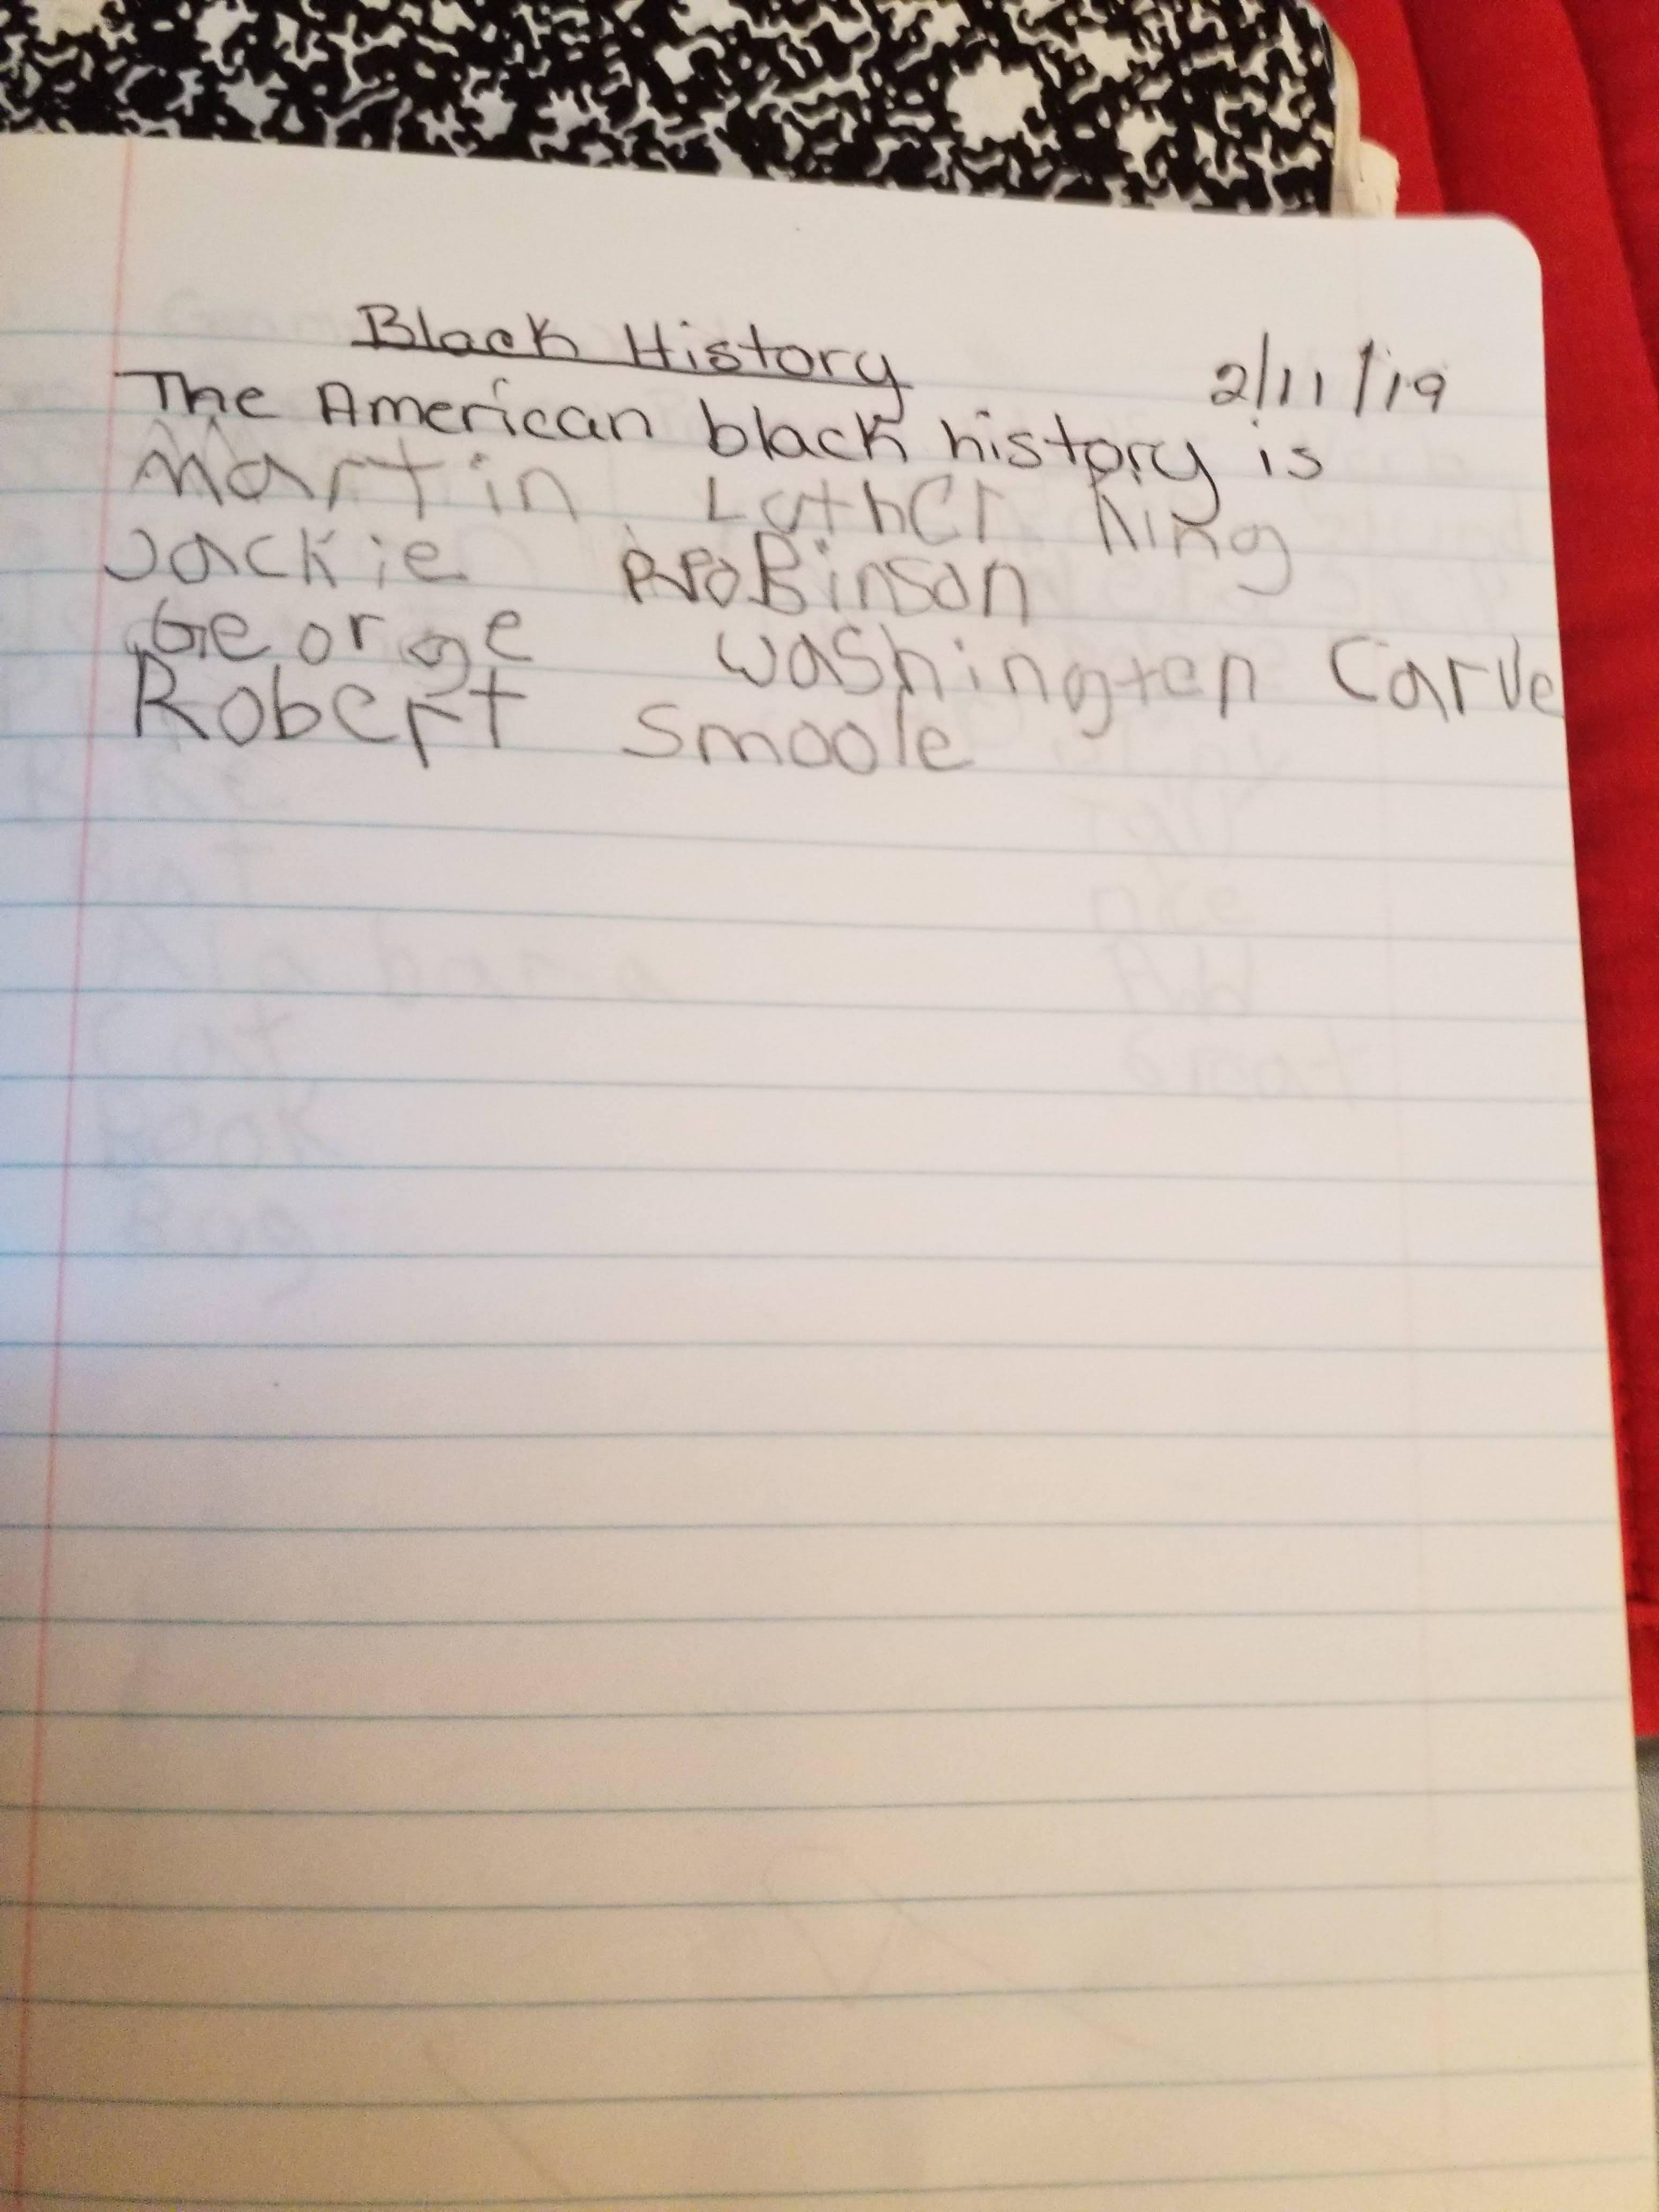 Black History
2/11/19
The American black history is
Martin Luther King
Jackie RoBinson
George Washington Carve
Robert Smoole